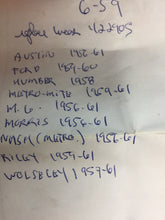 6-59
422905
AUSTIN 1952-61
FORD 1959-60
HUMBER 1958
METRO-MITE 1959-61
M.G. 1956-61
MORRIS 1956-61
NASH (METRO.) 1956-61
RILEY 1959-61
WOLSELEY 1957-61